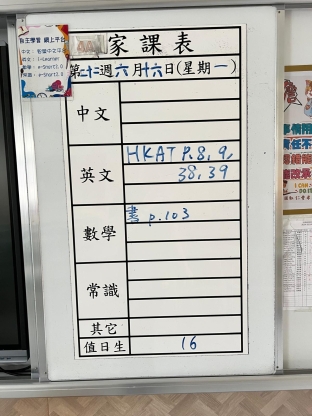 4A
家課表
第二十二週六月十六日(星期一)
中文
英文
HKAT P.8, 9,
38, 39
數學
書 p.103
常識
其它
值日生
16
自主學習 網上平台
i-Learner
e-Short2.0
e-Short2.0